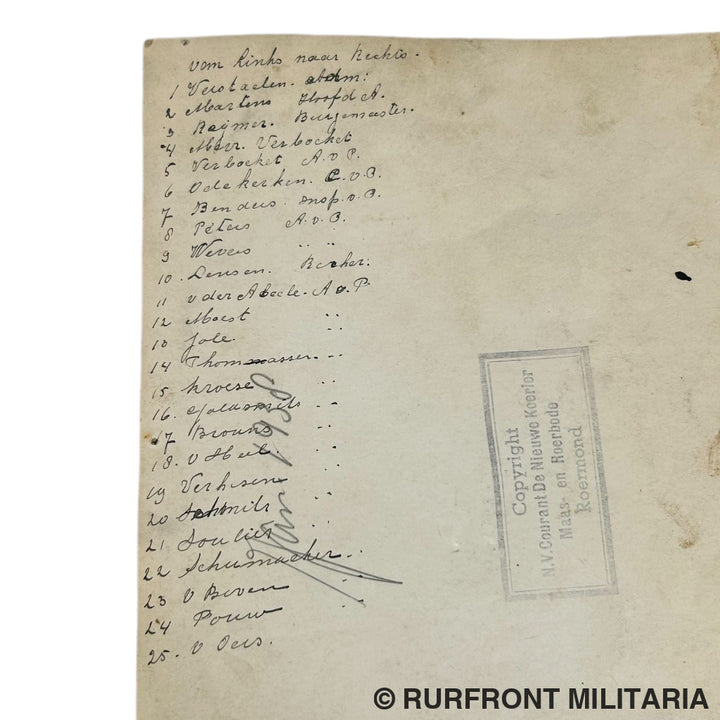 van links naar Rechts.
1 Verstaelen. Adm:
2 Martens Hoofd A.
3 Reijmer. Burgemeester.
4 Mevr. Verbocket
5 Verbocket A.v.P.
6 Odekerken. C.v.P.
7 Benders. insp.v.P.
8 Peters A.v.P.
9 Wevers " "
10. Densen. Recher:
11 v der Abeele. A v. P.
12 Moest "
13 Jole. "
14 Thommassen. "
15 Kroese "
16. Goldsmits "
17 Brouns "
18. v Heel. "
19 Verhesen "
20 Schmitz "
21. Soulier "
22 Schumacher "
23 v Boven "
24 Pouw "
25. v Oers.
Jan 1938
Copyright
N.V. Courant De Nieuwe Koerier
Maas- en Roerbode
Roermond
© RURFRONT MILITARIA